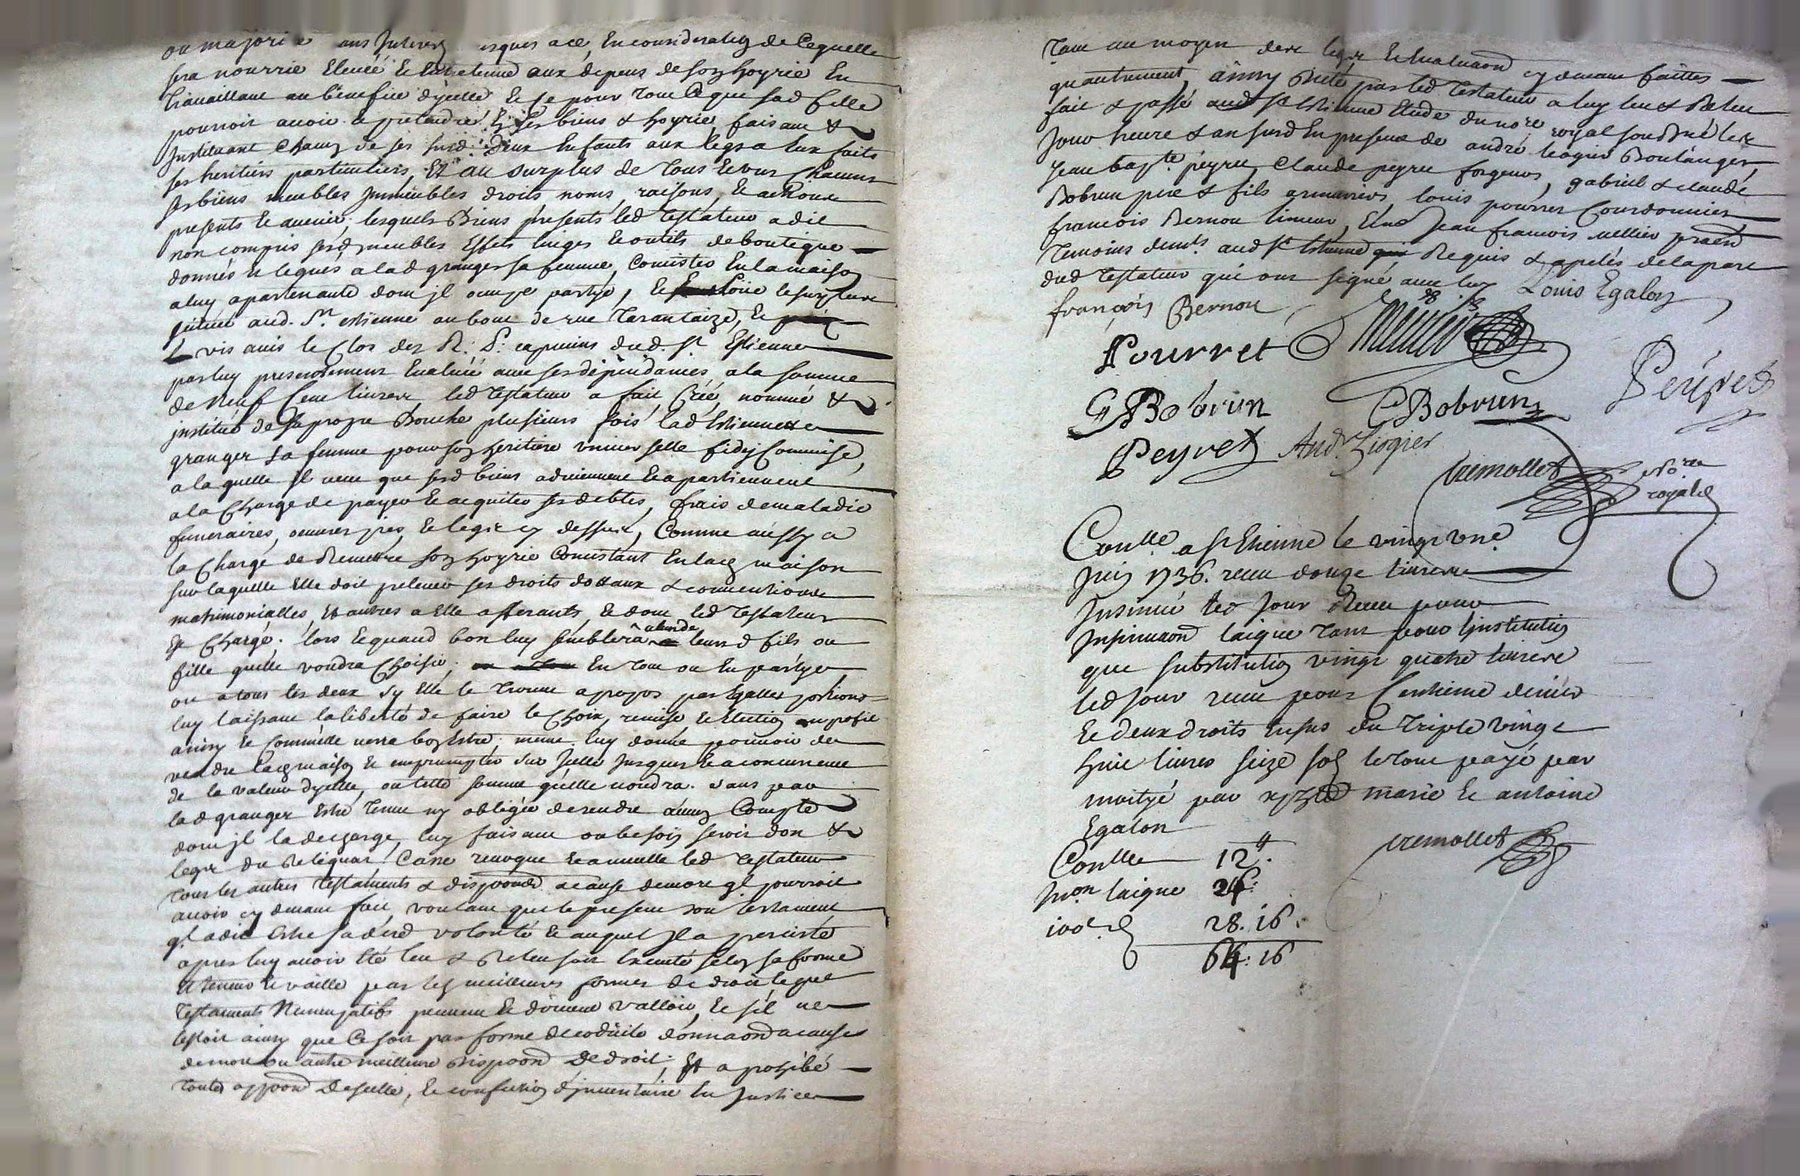 ou majorité sans Interest jusques a ce, En consideration de Cequelle
sera nourrie Elevée & Entretenue aux depens de son hoyrie En
travaillant au benefice d'ycelle & ce pour tout Ce que sad fille
pourroit auoir a pretendre En ses biens & hoyrie faisant &
Instituant Chacun de ses susd. deux Enfants aux legs a Eux faits
ses heritiers particuliers, Et au surplus de tous Et uns Chacuns
ses biens meubles Immeubles droits noms, raisons, & actions
presents & auenir, lesquels Biens presents led testateur a dit
non compris sesd. meubles Effets linges & outils de boutique
donnés & legués a lad granger sa femme, Consister En la maison
a luy apartenante dont jl occupe partye, &
scituée aud. St. estienne au bout de rue tarantaize, &
vis auis le Clos des R: P: capucins dud. St Estienne
par luy presentement Evaluée auec ses dépendances a la somme
de Neuf Cent liures led testateur a fait Créé, nommé &
institué de sa propre Bouche plusieurs fois lad Estiennette
granger sa femme pour son heritiere universelle fidej Commise,
a laquelle jl veut que sesd biens adviennent & apartiennent
a la Charge de payer & acquiter ses debtes, frais de maladie
funeraires, oeuvres pies, & legs cy dessus, Comme aussy a
la Charge de Remettre son hoyrie Consistant En lad maison
sur laquelle Elle doit prelever ses droits dottaux & conventions
matrimonialles, Et autres a Elle afferants, & dont led testateur
Est Chargé. lors & quand bon luy semblera a leurs d fils ou
fille quelle voudra Choisir, En tout ou En partye
ou a tous les deux sy Elle le trouve apropos par Egalles portions
luy laissant la liberté de faire le Choix, remise & Election
ainsy & Comme Elle verra bon Estre, meme luy donne pouvoir de
vendre lad maison & emprumpter sur jcelle jusques & a concurrence
de la valeur dycelle, ou telle somme qu'elle voudra. sans que
lad granger Estre tenue ny obligée de rendre aucun Compte
dont jl la decharge, luy faisant ou besoin seroit don &
legs du Reliquat. Casse revoque & annulle led testateur
tous les autres testaments & dispoond. a cause de mort ql pourroit
auoir cy devant fait, voulant que le present son testament
ql a dit Estre sa der volonté & auquel jl a persisté
apres luy auoir Eté leu & Releu soit Executé selon sa forme
& teneur & vaille par les meilleures formes de droit que
testaments Nuncupatifs peuvent & doivent valloir, & s'il ne
valoit ainsy que Ce soit par forme de codicile donnaon a cause
de mort ou autre meilleure Dispoon De droit, Et a prohibé
toutes appoon Descellé, & confection d'jnventaire En Justice
tant au moyen desd legs & Evaluaon cy devant faittes
qu'autrement, ainsy Dicté par led testateur a luy leu & Releu
fait & passé aud St Estienne Etude du nore royal soussigné les
jour heure & an susd En presence de andré liogier Boulanger,
Jean bapte peyret, Claude peyret forgeurs, gabriel & claude
Bobrun pere & fils armuriers, louis pourret Courdonnier
françois Bernou limeur, & me Jean francois mellier praen
temoins demts. aud St Estienne Requis & apelés de la part
dud testateur qui ont signé auec luy Louis Egalon
françois Bernou
Pourret Mellier
G Bobrun C Bobrun Peÿret
Peyret And. Liogier
tremollet Nore
royal
Conlle. a St Etienne le vingt un e
Juin 1736. receu douze liures
Insinué led Jour Receu pour
Insinuaon laique tant pour linstitution
que substitution vingt quatre liures
led jour receu pour Centieme denier
& deux droits Ensus du triple vingt
huit liures seize sols le tout payé par
moityé par marie & antoine
Egalon
Conlle 12#.
Inon laique 24:
100e. d 28. 16.
64: 16
tremollet